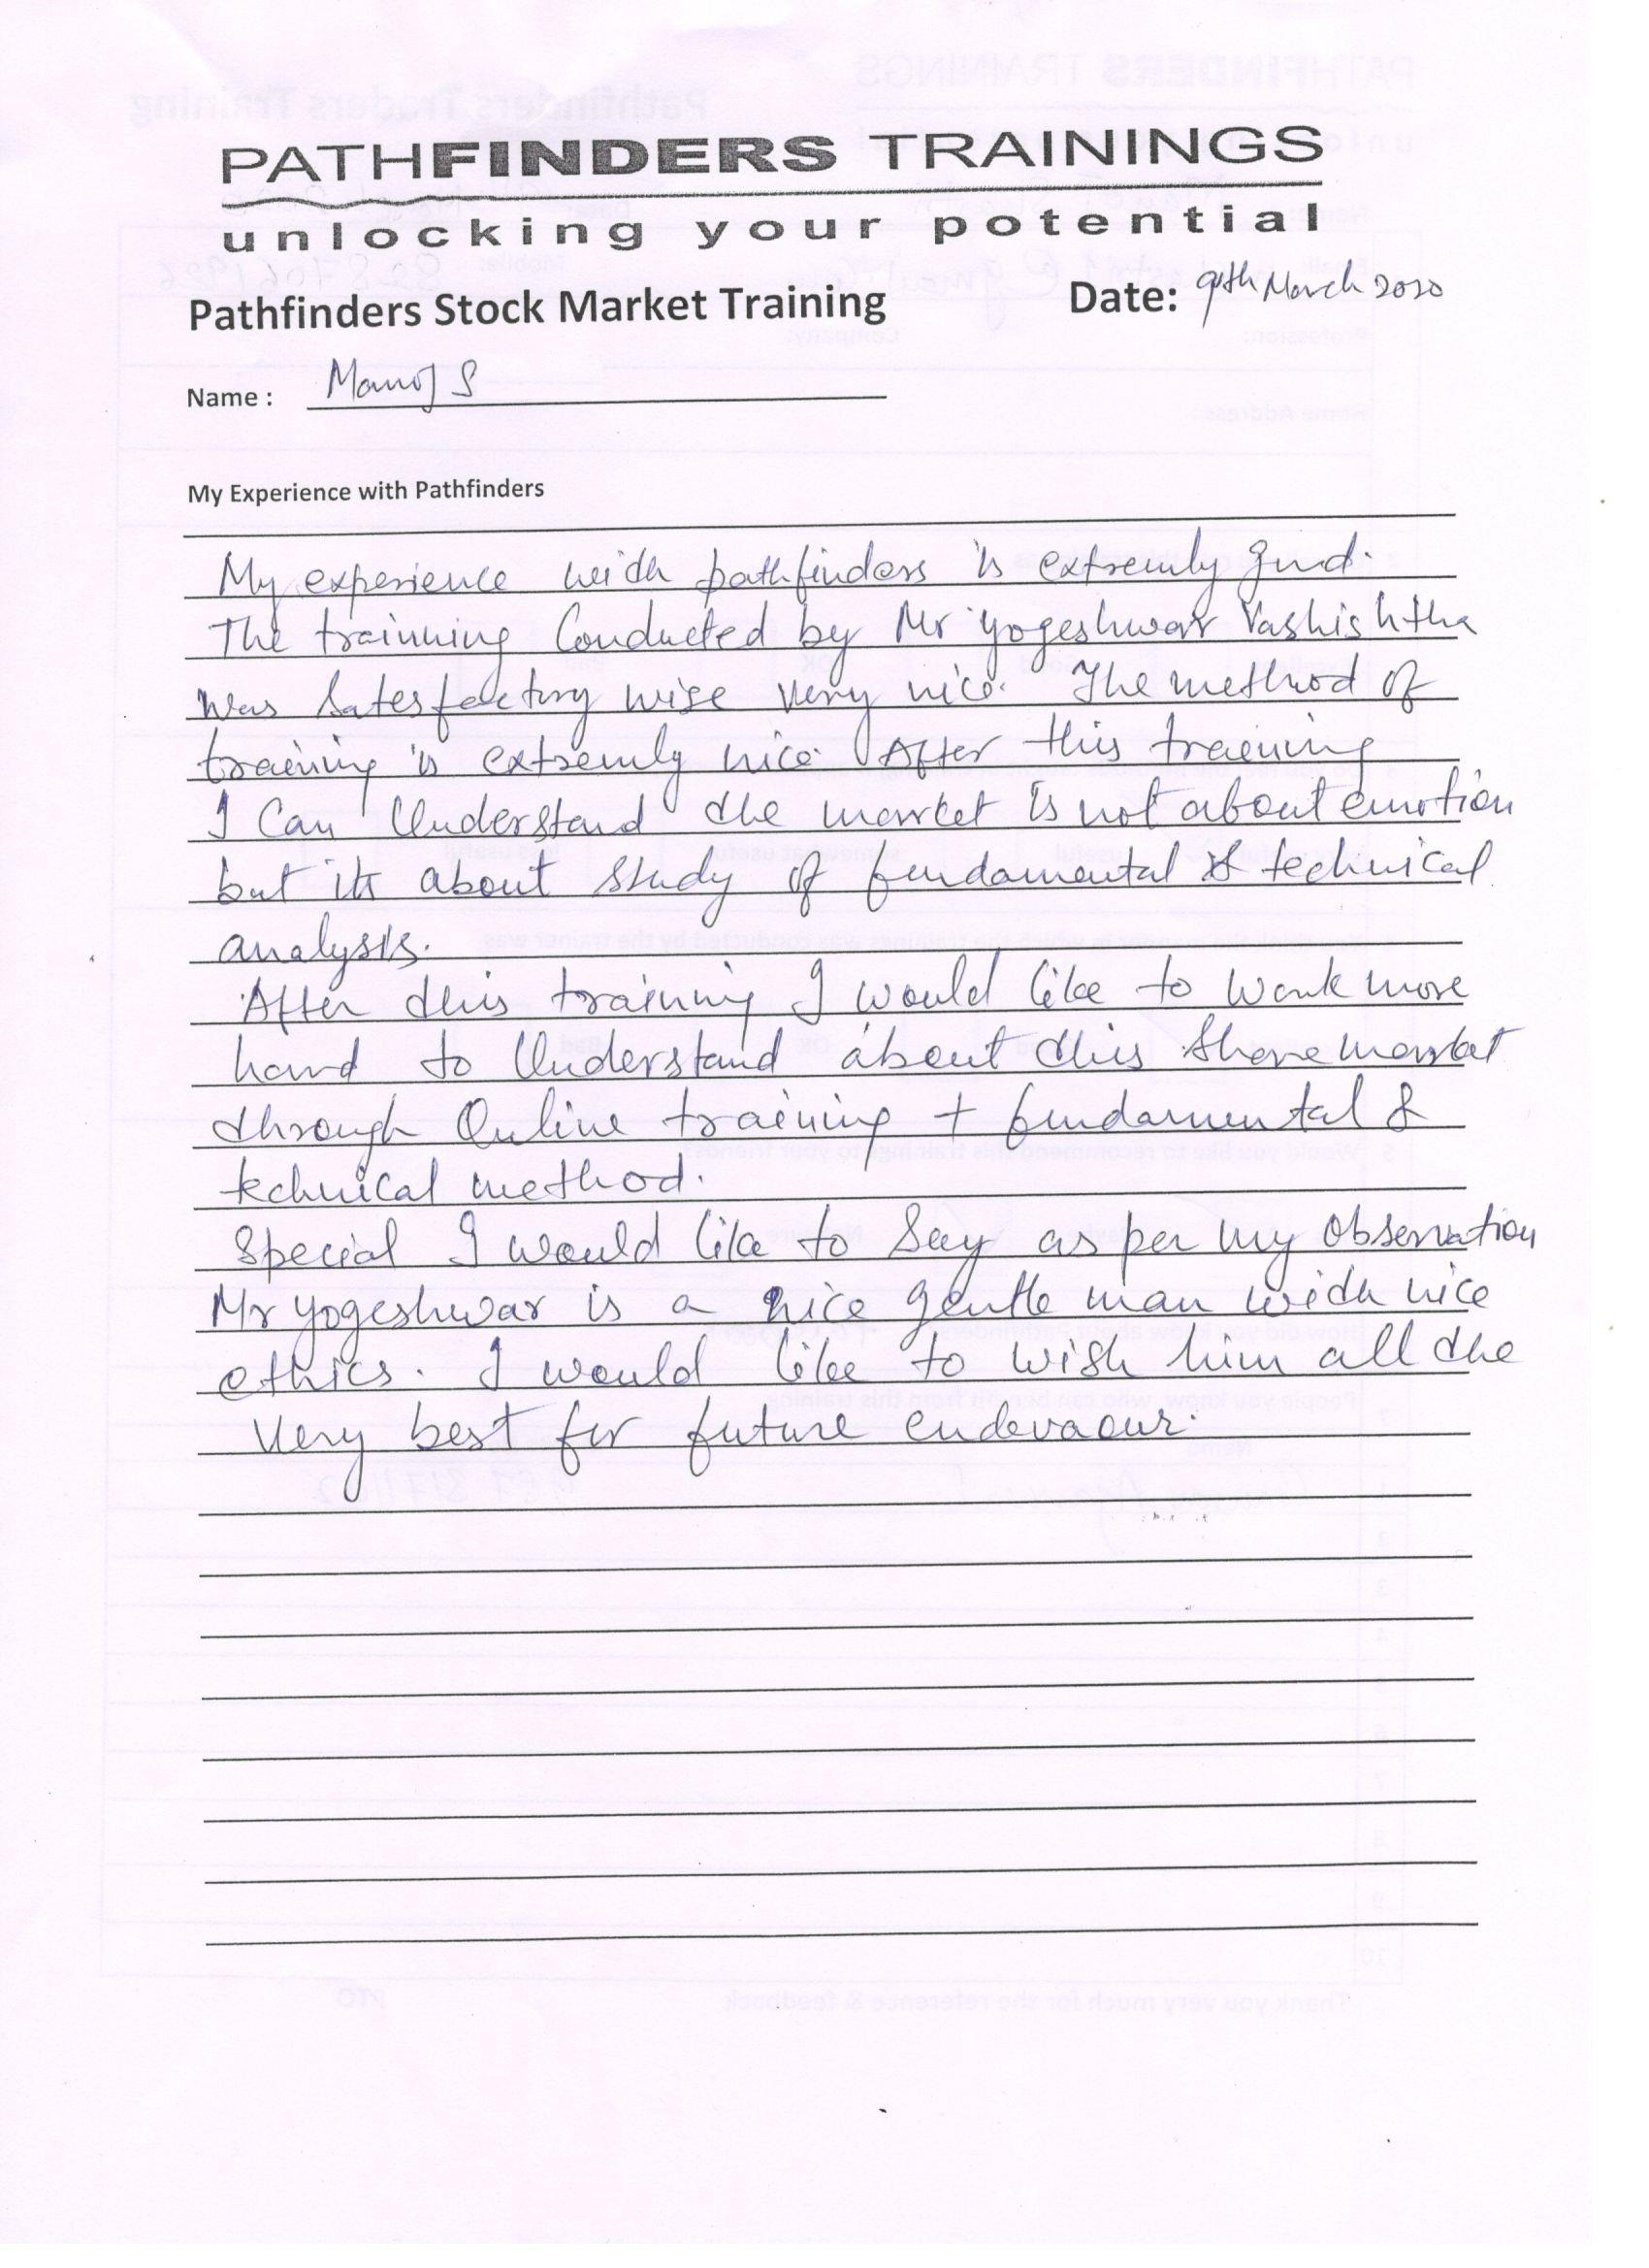 PATHFINDERS TRAININGS
unlocking your potential
Pathfinders Stock Market Training Date: 9th March 2020
Name : Manoj S
My Experience with Pathfinders
My experience with pathfinders is extremly good.
The trainning Conducted by Mr Yogeshwar Vashishtha
was Satesfactory wise very nice. The method of
training is extremly nice. After this training
I Can Understand the market is not about emotion
but its about study of fundamental & technical
analysis.
After this training I would like to work more
hard to Understand about this Share market
through Online training + fundamental &
technical method.
Special I would like to Say as per my Observation
Mr Yogeshwar is a nice gentle man with nice
ethics. I would like to wish him all the
Very best for future endevaour.